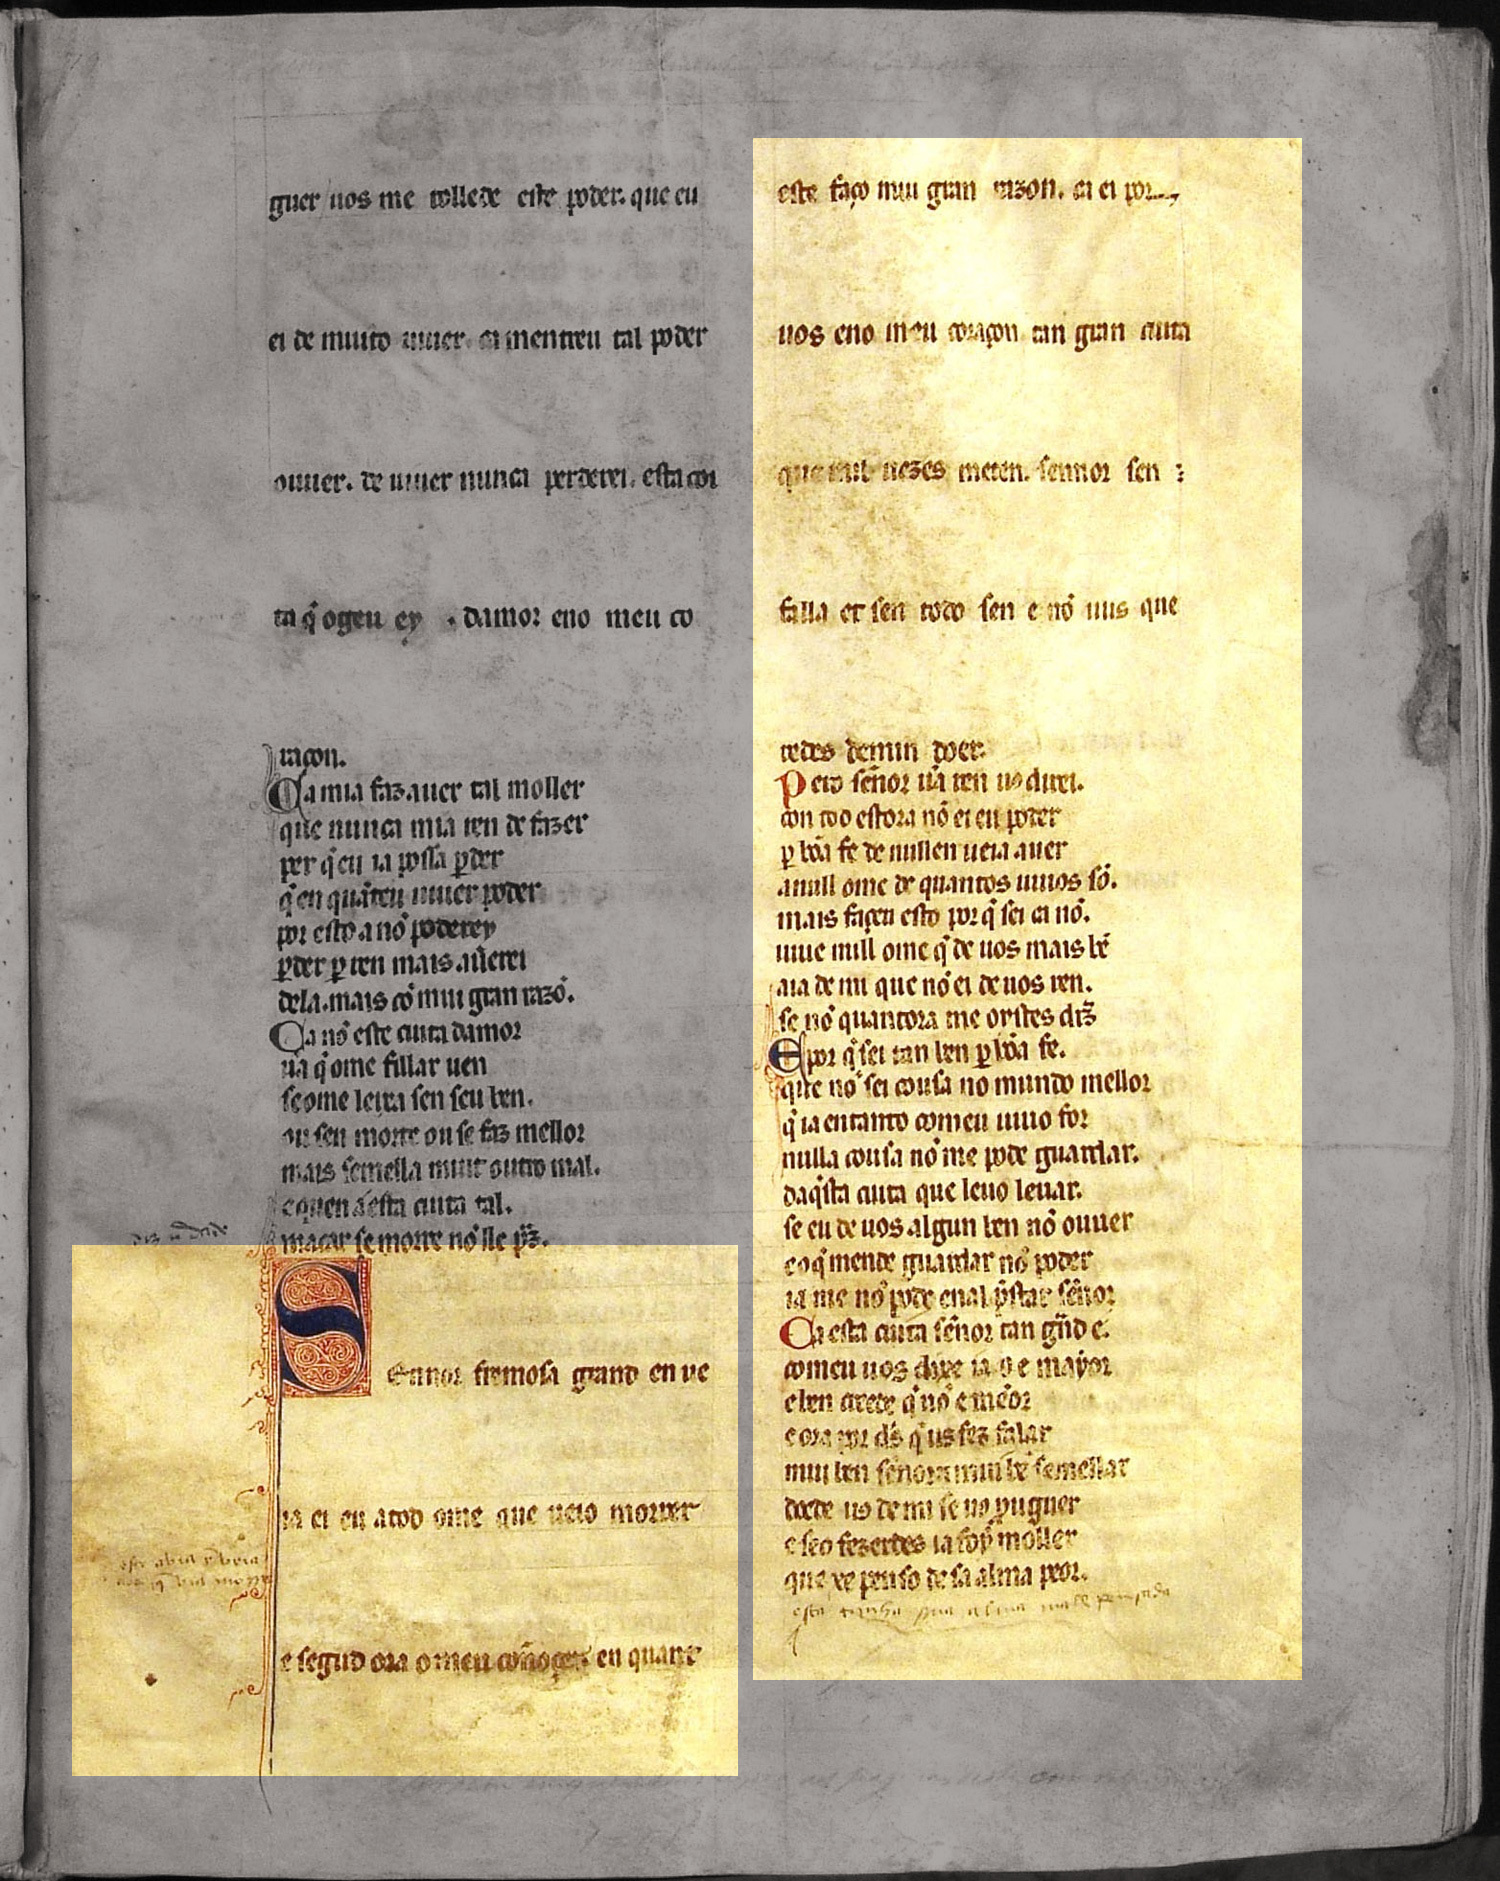 guer uos me tollede este poder. que eu
ei de muito uiuer. ca mentreu tal poder
ouuer. de uiuer nunca perderei. esta coi
ta q̃ ogeu ey . damor eno meu co
raçon.
Ca mia faz auer tal moller
que nunca mia ren de fazer
per q̃ eu ia possa ꝑder
q̃ en quãteu uiuer poder
por esto a nõ poderey
ꝑder ꝑ ren mais auerei
dela. mais cõ mui gran razõ.
Ca nõ este cuita damor
ũa q̃ ome fillar uen
seome leixa sen seu ben.
ou sen morre ou se faz mellor
mais semella muit outro mal.
equen á esta cuita tal.
macar se morre nõ lle pz̃.
Sennor fremosa grand en ue
ia ei eu atod ome que ueio morrer
e segūd ora o meu coñoçer en quant
este faço mui gran razon. ca ei por
uos eno meu coraçon tan gran cuita
que mil uezes meten. sennor sen
falla et sen todo sen e nõ uus que
redes demin doer.
Pero señor ũa ren uos direi.
con todo estora nõ ei eu poder
ꝑ bõa fe de nullen ueia auer
anull ome de quantos uiuos sõ.
mais façeu esto por q̃ sei ca nõ.
uiue null ome q̃ de uos mais bẽ
aia de mi que nõ ei de uos ren.
se nõ quantora me oistes diz̃
E por q̃ sei tan ben ꝑ bõa fe.
que nõ sei cousa no mundo mellor
q̃ ia entanto comeu uiuo for
nulla cousa nõ me pode guardar.
daq̃sta cuita que leuo leuar.
se eu de uos algun ben nõ ouuer
eoq̃ mende guardar nõ poder
ia me nõ pode enal p̃star señor
Ca esta cuita señor tan gñd e.
comeu uos dixe ia e mayor
eben creede q̃ nõ e meor
e ora por ds̃ q̃ us fez falar
mui ben señor e mui bẽ semellar
doede uos de mi se uos prouguer
e seo fezerdes ia soy moller
que xe penso de sa alma peor.
esta tenha sua alma mall pensada